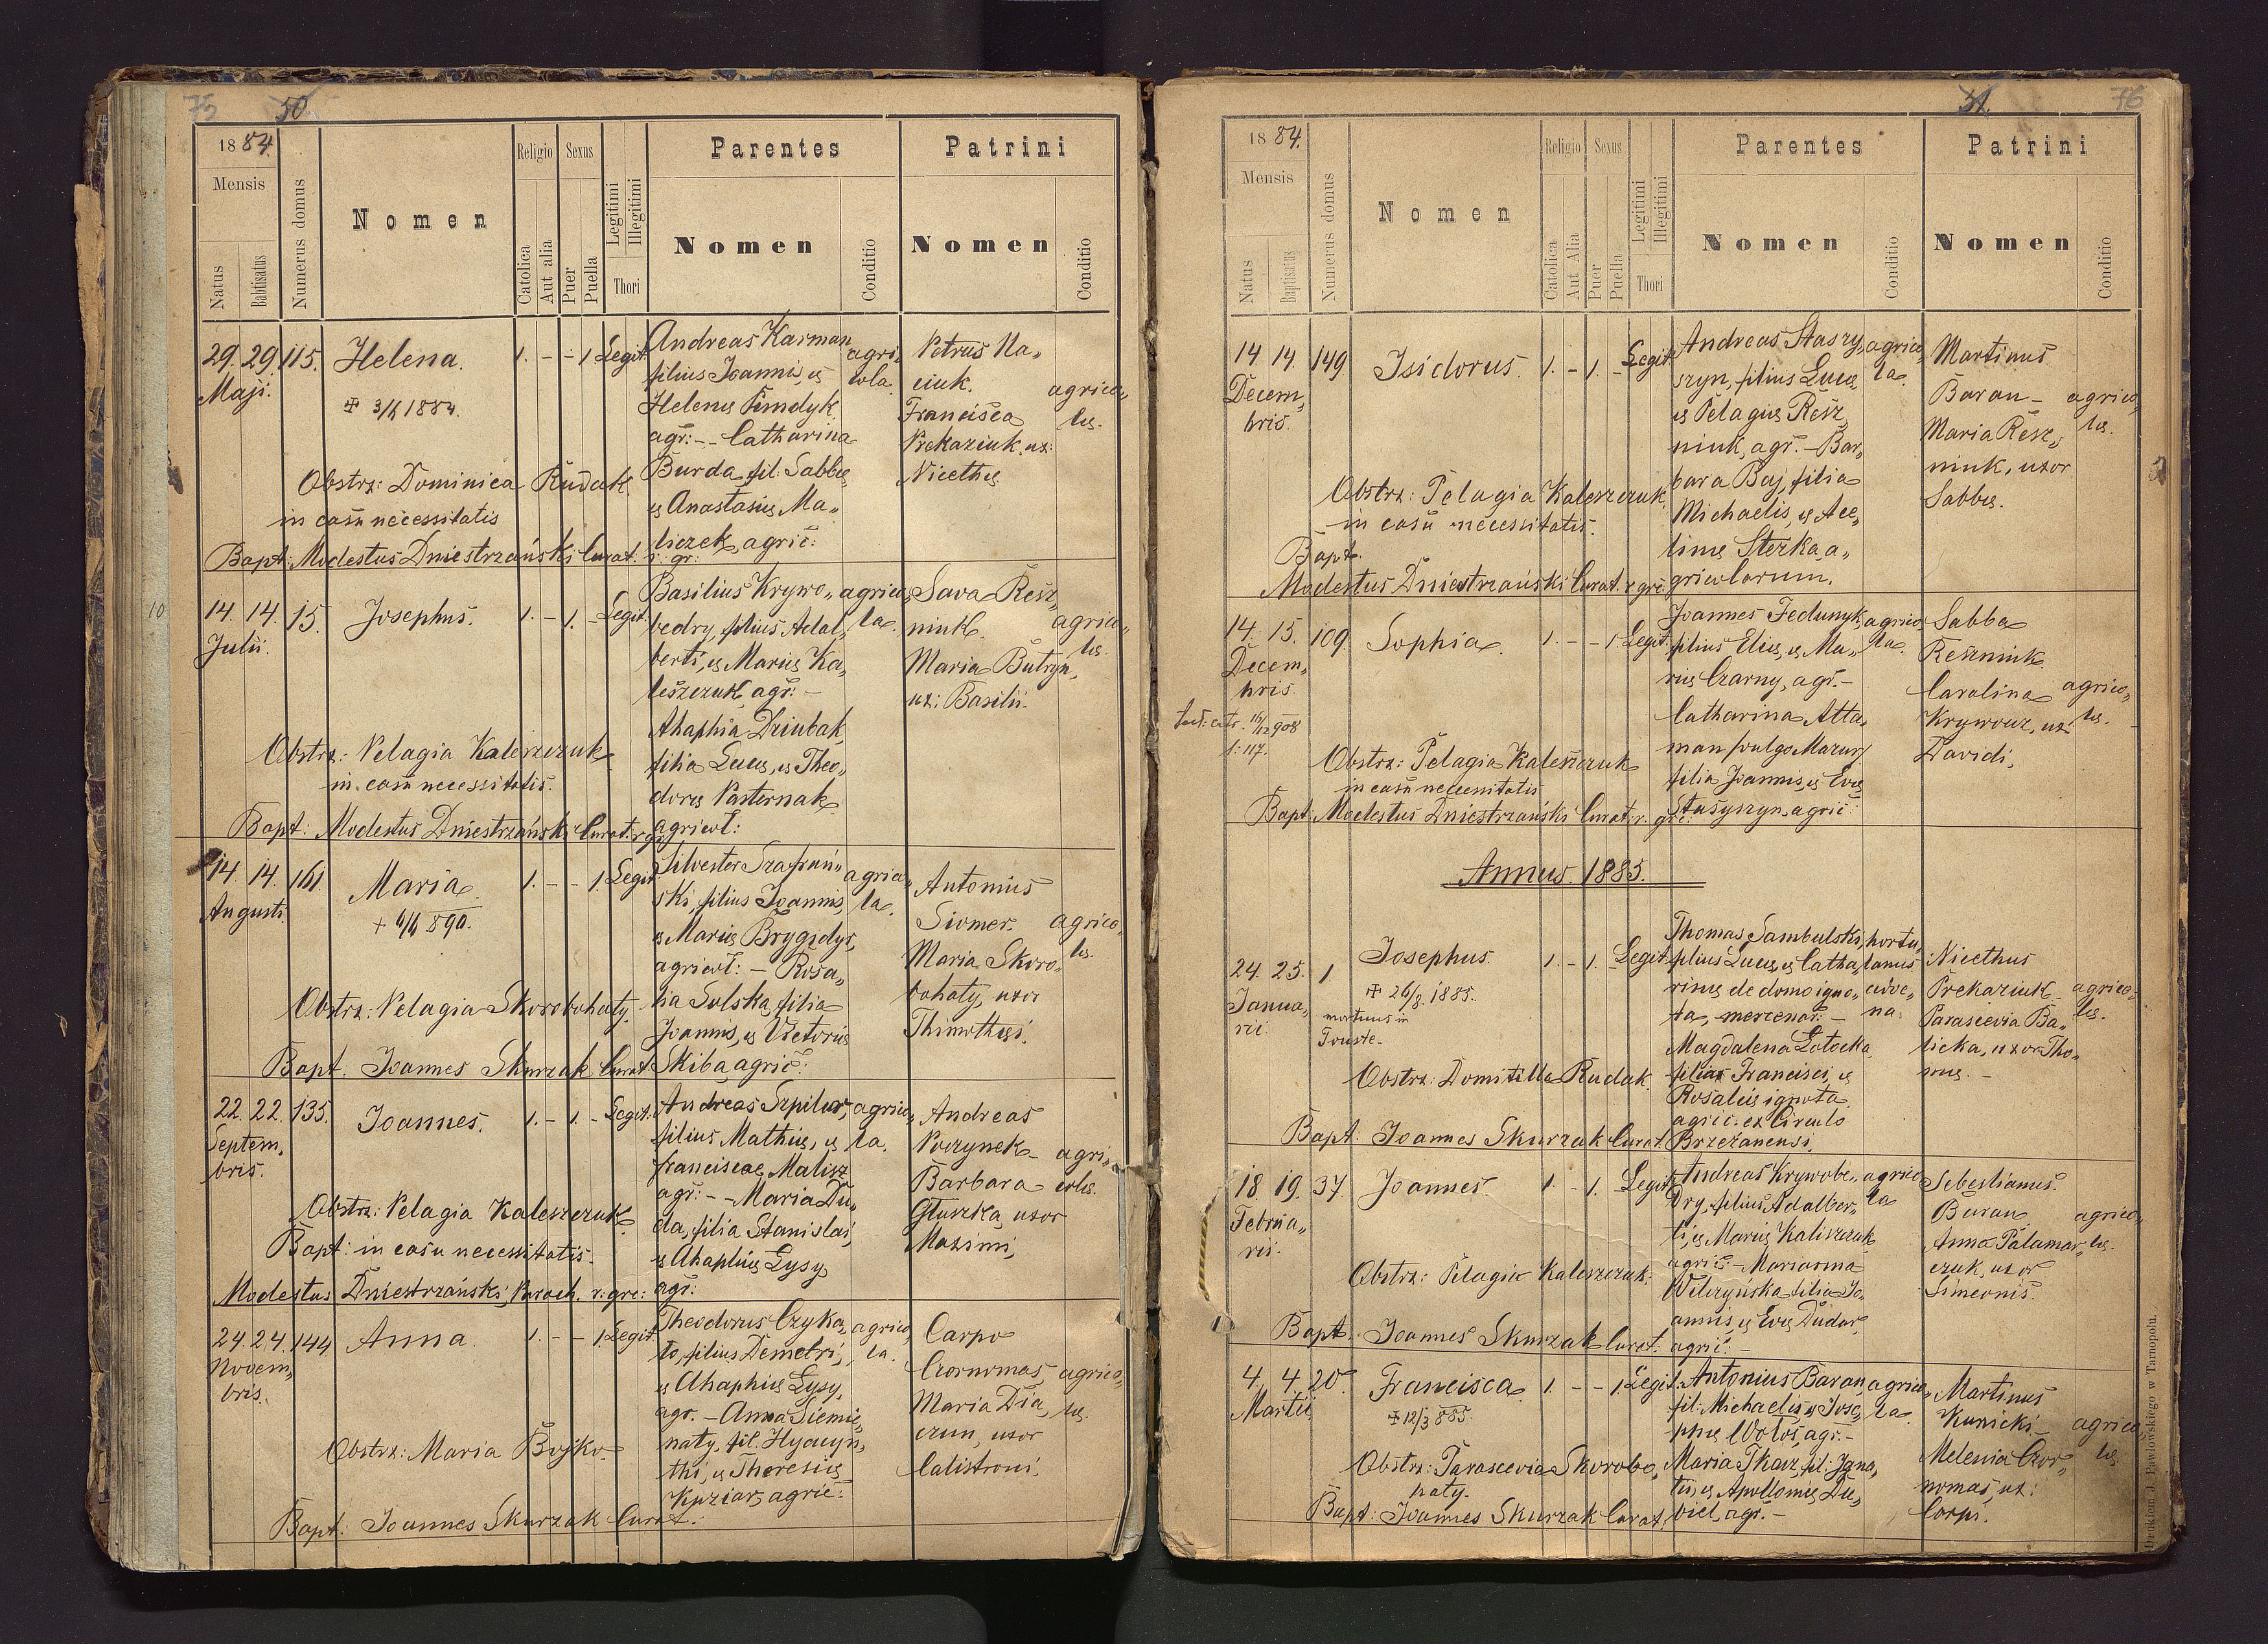 75 50.
1884.
Mensis
Natus
Babtisatus
Numerus domus
Nomen
Religio
Catolica
Aut alia
Sexus
Puer
Puella
Legitimi
Illegitimi
Thori
Parentes
Nomen
Conditio
Patrini
Nomen
Conditio
29. 29. 115. Helena. 1. - - 1 Legit.
Maji.
✠ 3/6 1884.
Obstrx: Dominica Rudak.
in casu necessitatis
Bapt: Modestus Dniestrzański Curat. r: gr:
Andreas Karman
filius Joannis, et
Helenæ Pundyk
agr: - - Catharina
Burda, fil: Sabbæ
et Anastasiæ Ma„
liczek, agric:
agri„
cola
Petrus Ha„
ciuk.
Francisca
Prekaziuk, ux:
Nicethæ
agrico„
læ.
10
14. 14. 15. Josephus. 1. - 1. - Legit.
Julii.
Obstrx: Pelagia Kaleszczuk
in casu necessitatis.
Bapt: Modestus Dniestrzański Curat. r. gr.
Basilius Krywo„
bedry, filius Adal„
berti, et Mariæ Ka„
leszczuk, agr: -
Ahaphia Dziubak,
filia Lucæ, et Theo„
doræ Pasternak
agricol:
agrico„
la.
Sava Resz„
niuk.
Maria Butryn,
ux: Basilii.
agrico„
læ
14. 14. 161. Maria. 1. - - 1. Legit.
Augusti.
Obstrx: Pelagia Skorobohaty.
Bapt. Joannes Skurzak Curat.
Silvester Szafrań„
ski, filius Joannis,
et Mariæ Brygidyr,
agricol: - Rosa„
lia Sulska, filia
Joannis, et Victoriæ
Skiba, agric:
agrico„
la.
Antonius
Siomer.
Maria Skoro„
bohaty, uxor
Thimothei.
agrico„
læ.
22. 22. 135. Joannes. 1. - 1. - Legit.
Septem„
bris.
Obstrx: Pelagia Kaleszczuk.
Bapt: in casu necessitatis.
Modestus Dniestrzański, Paroch. r: gr:
Andreas Szpilur,
filius Mathiæ, et
franciscae Malisz
agr: - - Maria Du„
da, filia Stanislai,
et Ahaphiæ Łysy
agr:
agrico„
la.
Andreas
Poczynek -
Barbara
Głuszka, uxor
Maximi,
agri„
colæ.
24. 24. 144 Anna. 1. - - 1. Legit.
Novem„
bris.
Obstrx: Maria Bojko.
Bapt: Joannes Skurzak Curat.
Theodorus Czyka„
ło, filius Demetri,
et Ahaphiæ Łysy,
agr. - Anna Siemie„
naty, fil. Hyacyn„
thi, et Theresiæ
Kuziar, agric:
agrico„
la.
Carpo
Czornomas,
Maria Dia„
czun, uxor
Calistroni.
agrico„
læ.
51. 76
1884.
Mensis
Natus
Baptisatus
Numerus domus
Nomen
Religio
Catolica
Aut Alia
Sexus
Puer
Puella
Legitimi
Illegitimi
Thori
Parentes
Nomen
Conditio
Patrini
Nomen
Conditio
14. 14. 149 Isidorus. 1. - 1. - Legit.
Decem„
bris.
Obstrx: Pelagia Kaleszczuk.
in casu necessitatis.
Bapt.
Modestus Dniestrzański Curat. r. gr:
Andreas Staszy„
szyn, filius Lucæ,
et Pelagiæ Resz„
niuk, agr. - Bar„
bara Baj, filia
Michaelis, et Ace„
linæ Sterka a„
gricolarum.
agrico„
la.
Martinus
Baran -
Maria Resz„
niuk, uxor
Sabbæ.
agrico„
læ.
14. 15. 109. Sophia. 1. - - 1 Legit.
Decem„
bris
16/12 908
l: 117.
Obstrx: Pelagia Kaleszczuk
in casu necessitatis
Bapt: Modestus Dniestrzański Curat. r. gr:
Joannes Fedunyk,
filius Eliæ, et Ma„
riæ Czarny, agr. -
Catharina Atta„
man /vulgo Mazur/
filia Joannis, et Evæ
Staszyszyn, agric:
agrico„
la.
Sabba
Reszniuk.
Carolina
Krywouz, ux:
Davidi,
agrico„
læ.
Annus. 1885.
24. 25. 1 Josephus. 1. - 1. - Legit.
Janua„
rii
✠ 26/8. 1885.
mortuus in
Touste.
Obstrx: Domitilla Rudak.
Bapt: Joannes Skurzak Curat.
Thomas Sambulski,
filius Lucæ, et Catha„
rinæ de domo igno„
ta, mercenar: -
Magdalena Łotocka
filia Francisci, et
Rosaliæ ignota.
agric: ex Circulo
Brzeżanensi.
hortu„
lanus
adve„
na.
Nicethus
Prekaziuk.
Parascevia Ba„
licka, uxor Tho„
mæ. -
agrico„
læ.
18. 19. 37 Joannes. 1. - 1. Legit.
Februa„
rii.
Obstrx: Pelagia Kaleszczuk.
Bapt: Joannes Skurzak Curat:
Andreas Krywobe„
dry, filius Adalber„
ti, et Mariæ Kaliszczuk
agric: - Marianna
Wilczyńska, filia Jo„
annis, et Evæ Dudar,
agric: -
agrico„
la
Sebestianus.
Buran.
Anna Palamar„
czuk, uxor
Simeonis.
agrico„
læ.
4. 4. 20. Francisca. 1. - - 1 Legit.
Martii
✠ 12/3 885.
Obstrx: Parascevia Skorobo„
haty.
Bapt: Joannes Skurzak Curat.
Antonius Baran,
fil: Michaelis, et Jose„
phæ Wołos, agr. -
Maria Tkacz, fil: Igna„
tii, et Apolloniæ Du„
biel, agr. -
agrico„
la.
Martinus
Kunicki -
Melenia Czor„
nomas, ux:
Corpi.
agrico„
læ
Drukiem J. Pawłowskiego w Tarnopolu.